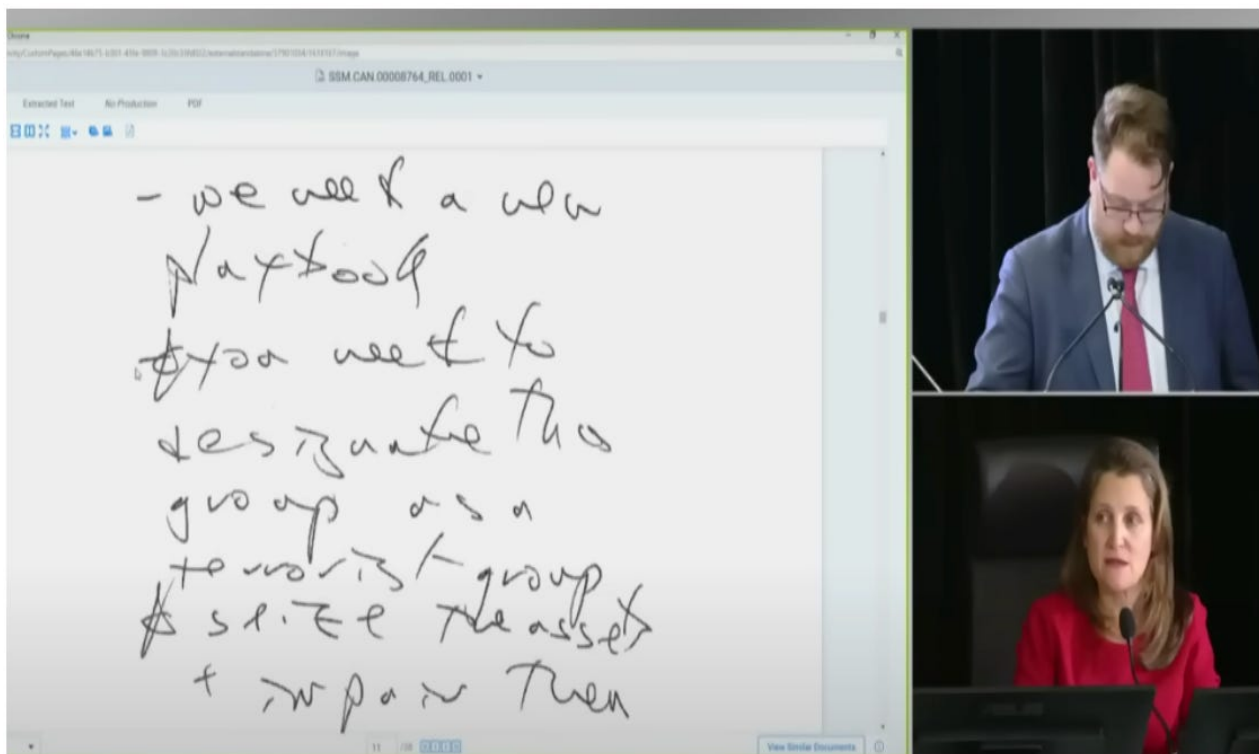 SSM.CAN.00008764_REL.0001
Extracted Text No Production PDF
- we need a new
playbook
you need to
designate this
group as a
terrorist group
& seize the assets
+ impair them
11
View Similar Documents